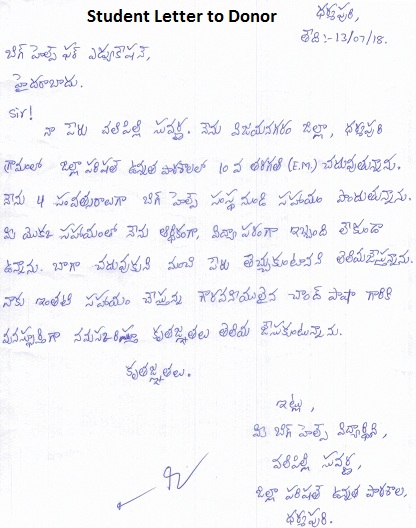 Student Letter to Donor
ధర్మపురి,
తేది:- 13/07/18.
బిగ్ హెల్ప్ ఫర్ ఎడ్యుకేషన్,
హైదరాబాదు.
Sir!
నా పేరు వలిపిల్లి సువర్ణ. నేను విజయనగరం జిల్లా, ధర్మపురి
గ్రామంలో జిల్లా పరిషత్ ఉన్నత పాఠశాలలో 10 వ తరగతి (E.M.) చదువుతున్నాను.
నేను 4 సంవత్సరాలుగా బిగ్ హెల్ప్ సంస్థ నుండి సహాయం పొందుతున్నాను.
మీ యొక్క సహాయంలో నేను ఆర్థికంగా, విద్యా పరంగా ఇబ్బంది లేకుండా
ఉన్నాను. బాగా చదువుకుని మంచి పేరు తెచ్చుకుంటానని తెలియజేస్తున్నాను.
నాకు ఇంతటి సహాయం చేస్తున్న గౌరవనీయులైన చాంద్ పాషా గారికి
మనస్ఫూర్తిగా నమస్కరిస్తూ కృతజ్ఞతలు తెలియ జేసుకుంటున్నాను.
కృతజ్ఞతలు.
ఇట్లు,
మీ బిగ్ హెల్ప్ విద్యార్థిని,
వలిపిల్లి సువర్ణ,
జిల్లా పరిషత్ ఉన్నత పాఠశాల,
ధర్మపురి.